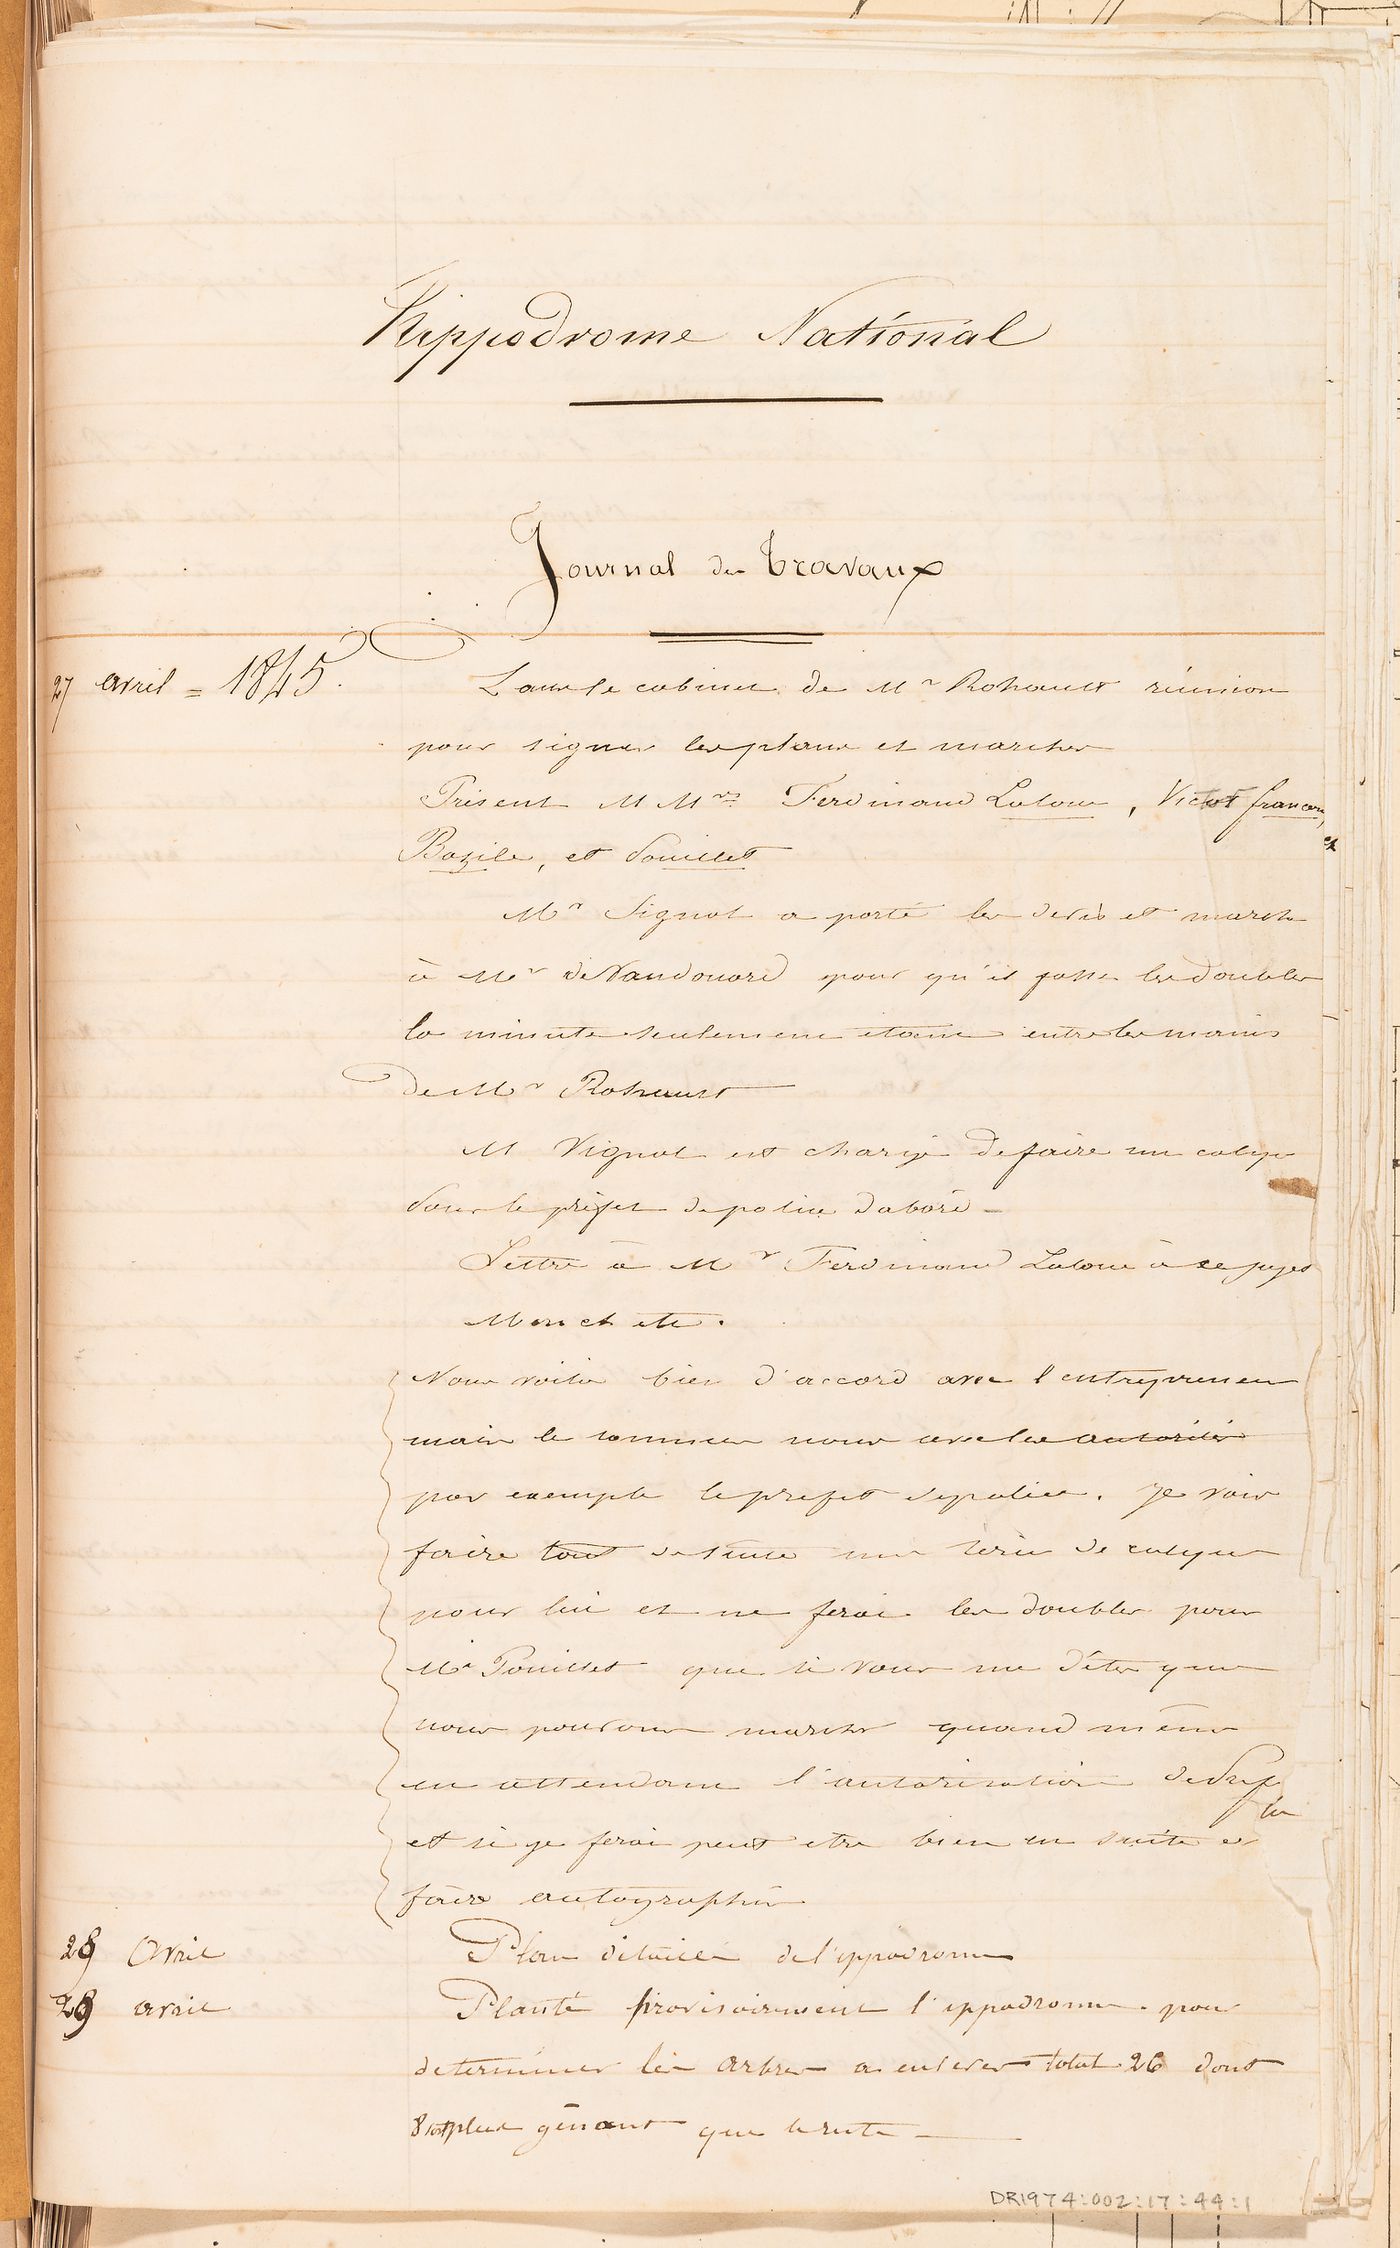 Hippodrome National
Journal des Travaux
27 avril = 1845.
Dans le cabinet de Mr Rohault réunion
pour signer les plans et marchés
Présent M Mrs Ferdinand Laloue, Victor franconi,
Bazile, et Pouillet et
Mr Vignol a porté les devis et marchés
à Mr de Vandouard pour qu'il fasse les doubles
la minute seulement étant entre les mains
de Mr Rohault
M Vignol est chargé de faire un calque
pour le préfet de police dabord -
Lettre à Mr Ferdinand Laloue à ce sujet
Mon ch etc.
Nous voila bien d'accord avec l'entrepreneur
mais le sommes nous avec les autorités
par exemple le prefet de police. Je vais
faire tout de suite une série de calques
pour lui et ne ferai les doubles pour
Mr Pouillet que si vous me dites que
nous pouvons marcher quand même
en attendant l'autorisation de Pref
et si je ferai peut etre bien en suite
faire autographier
28 Avril
Plan détaillé de l'ippodrome
29 avril
Planté provisoirement l'ippodrome pour
determiner les arbres a enlever total 26 dont
8 plus gênant que le reste
DR1974:002:17:44:1